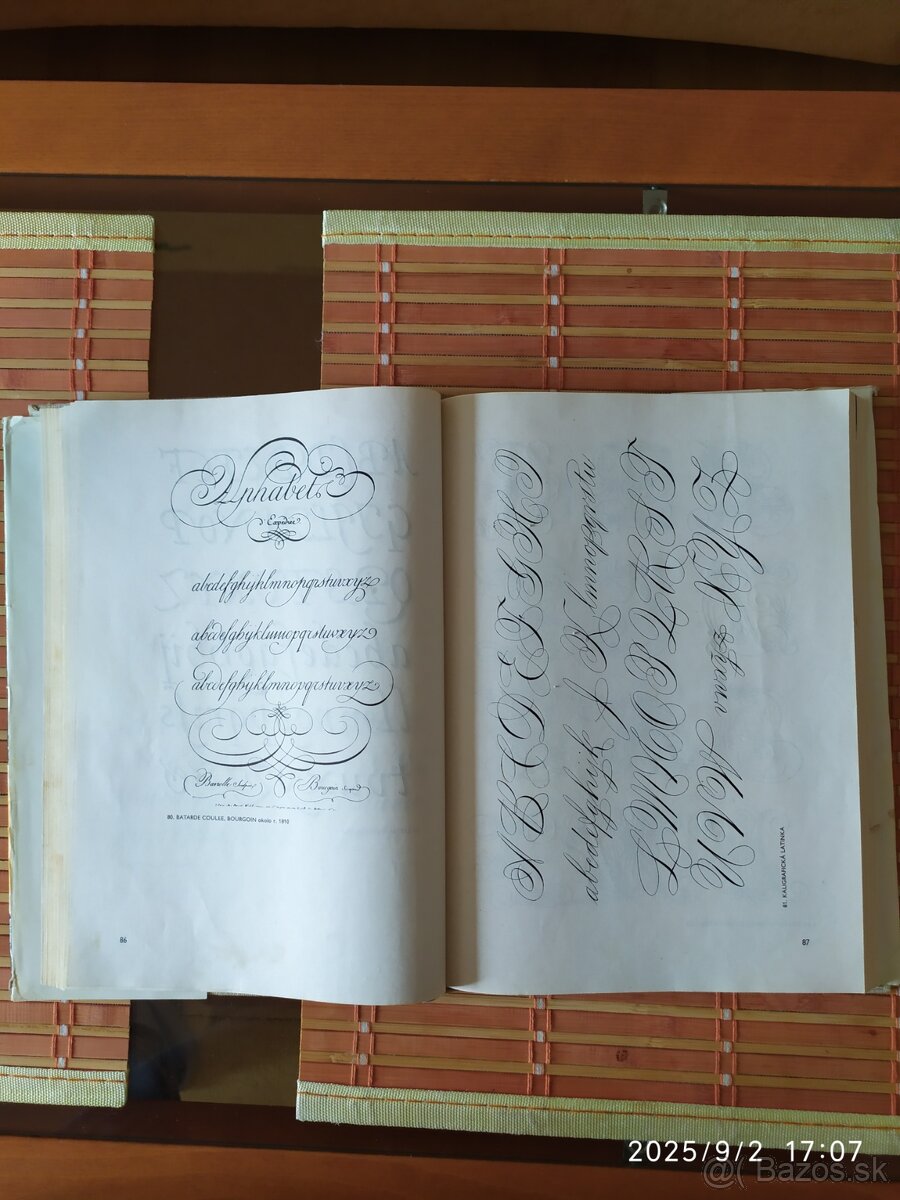 Alphabets
d'Expédiée
abcdefghyklmnopqrstuvxyz
abcdefghyklmnopqrstuvxyz
abcdefghyklmnopqrstuvxyz
Bourgoin
80. BATARDE COULEE, BOURGOIN okolo r. 1810
86
A B C D E F G H I
abcdefghijk J K lmnopqrstu
L M N O P Q R S T
81. KALIGRAFICKÁ LATINKA
87
2025/9/2 17:07
@( Bazos.sk